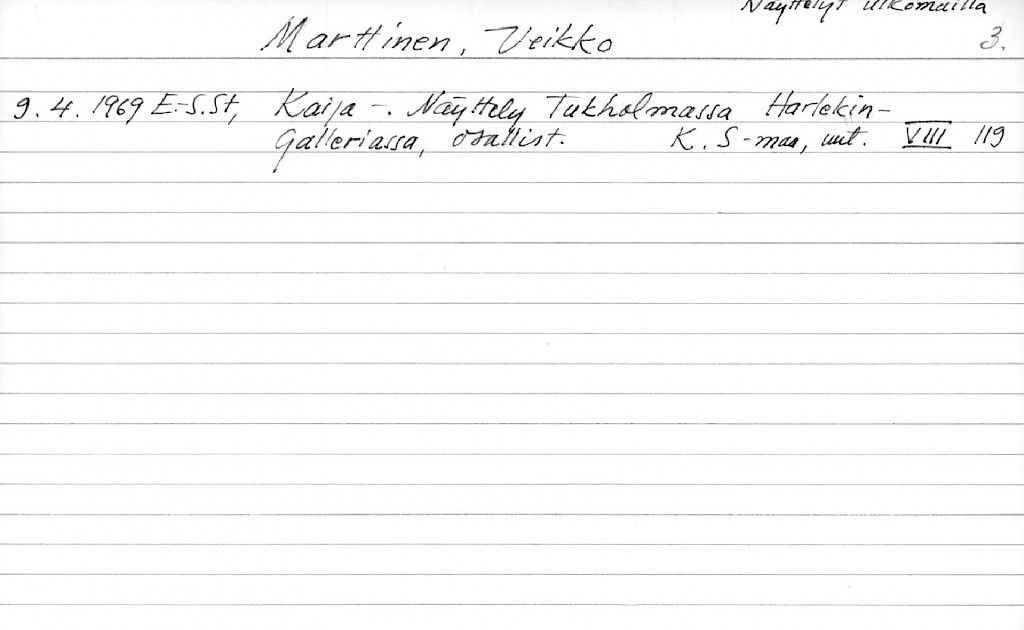 Näyttelyt ulkomailla
Marttinen, Veikko 3.
9. 4. 1969 E.-S.St, Kaija -. Näyttely Tukholmassa Harlekin-
Galleriassa, osallist. K. S-maa, uut. VIII 119